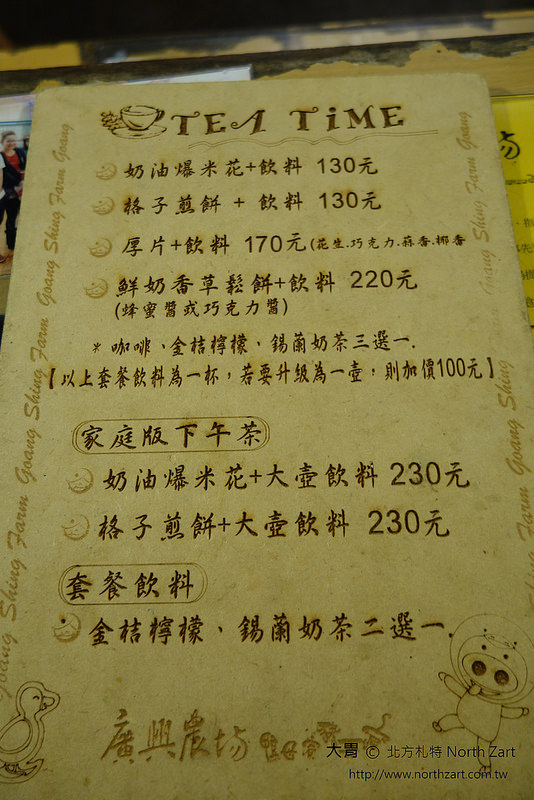 TEA TiME
奶油爆米花+飲料 130元
格子煎餅 + 飲料 130元
厚片+飲料 170元(花生.巧克力.蒜香.椰香
鮮奶香草鬆餅+飲料 220元
(蜂蜜醬或巧克力醬)
* 咖啡、金桔檸檬、錫蘭奶茶三選一.
【以上套餐飲料為一杯，若要升級為一壺，則加價100元】
家庭版下午茶
奶油爆米花+大壺飲料 230元
格子煎餅+大壺飲料 230元
套餐飲料
金桔檸檬、錫蘭奶茶二選一.
廣興農場
Goang Shing Farm Goang Shing Farm Goang Shing Farm Goang
Goang Shing Farm Goang Shing Farm
大胃 © 北方札特 North Zart
http://www.northzart.com.tw